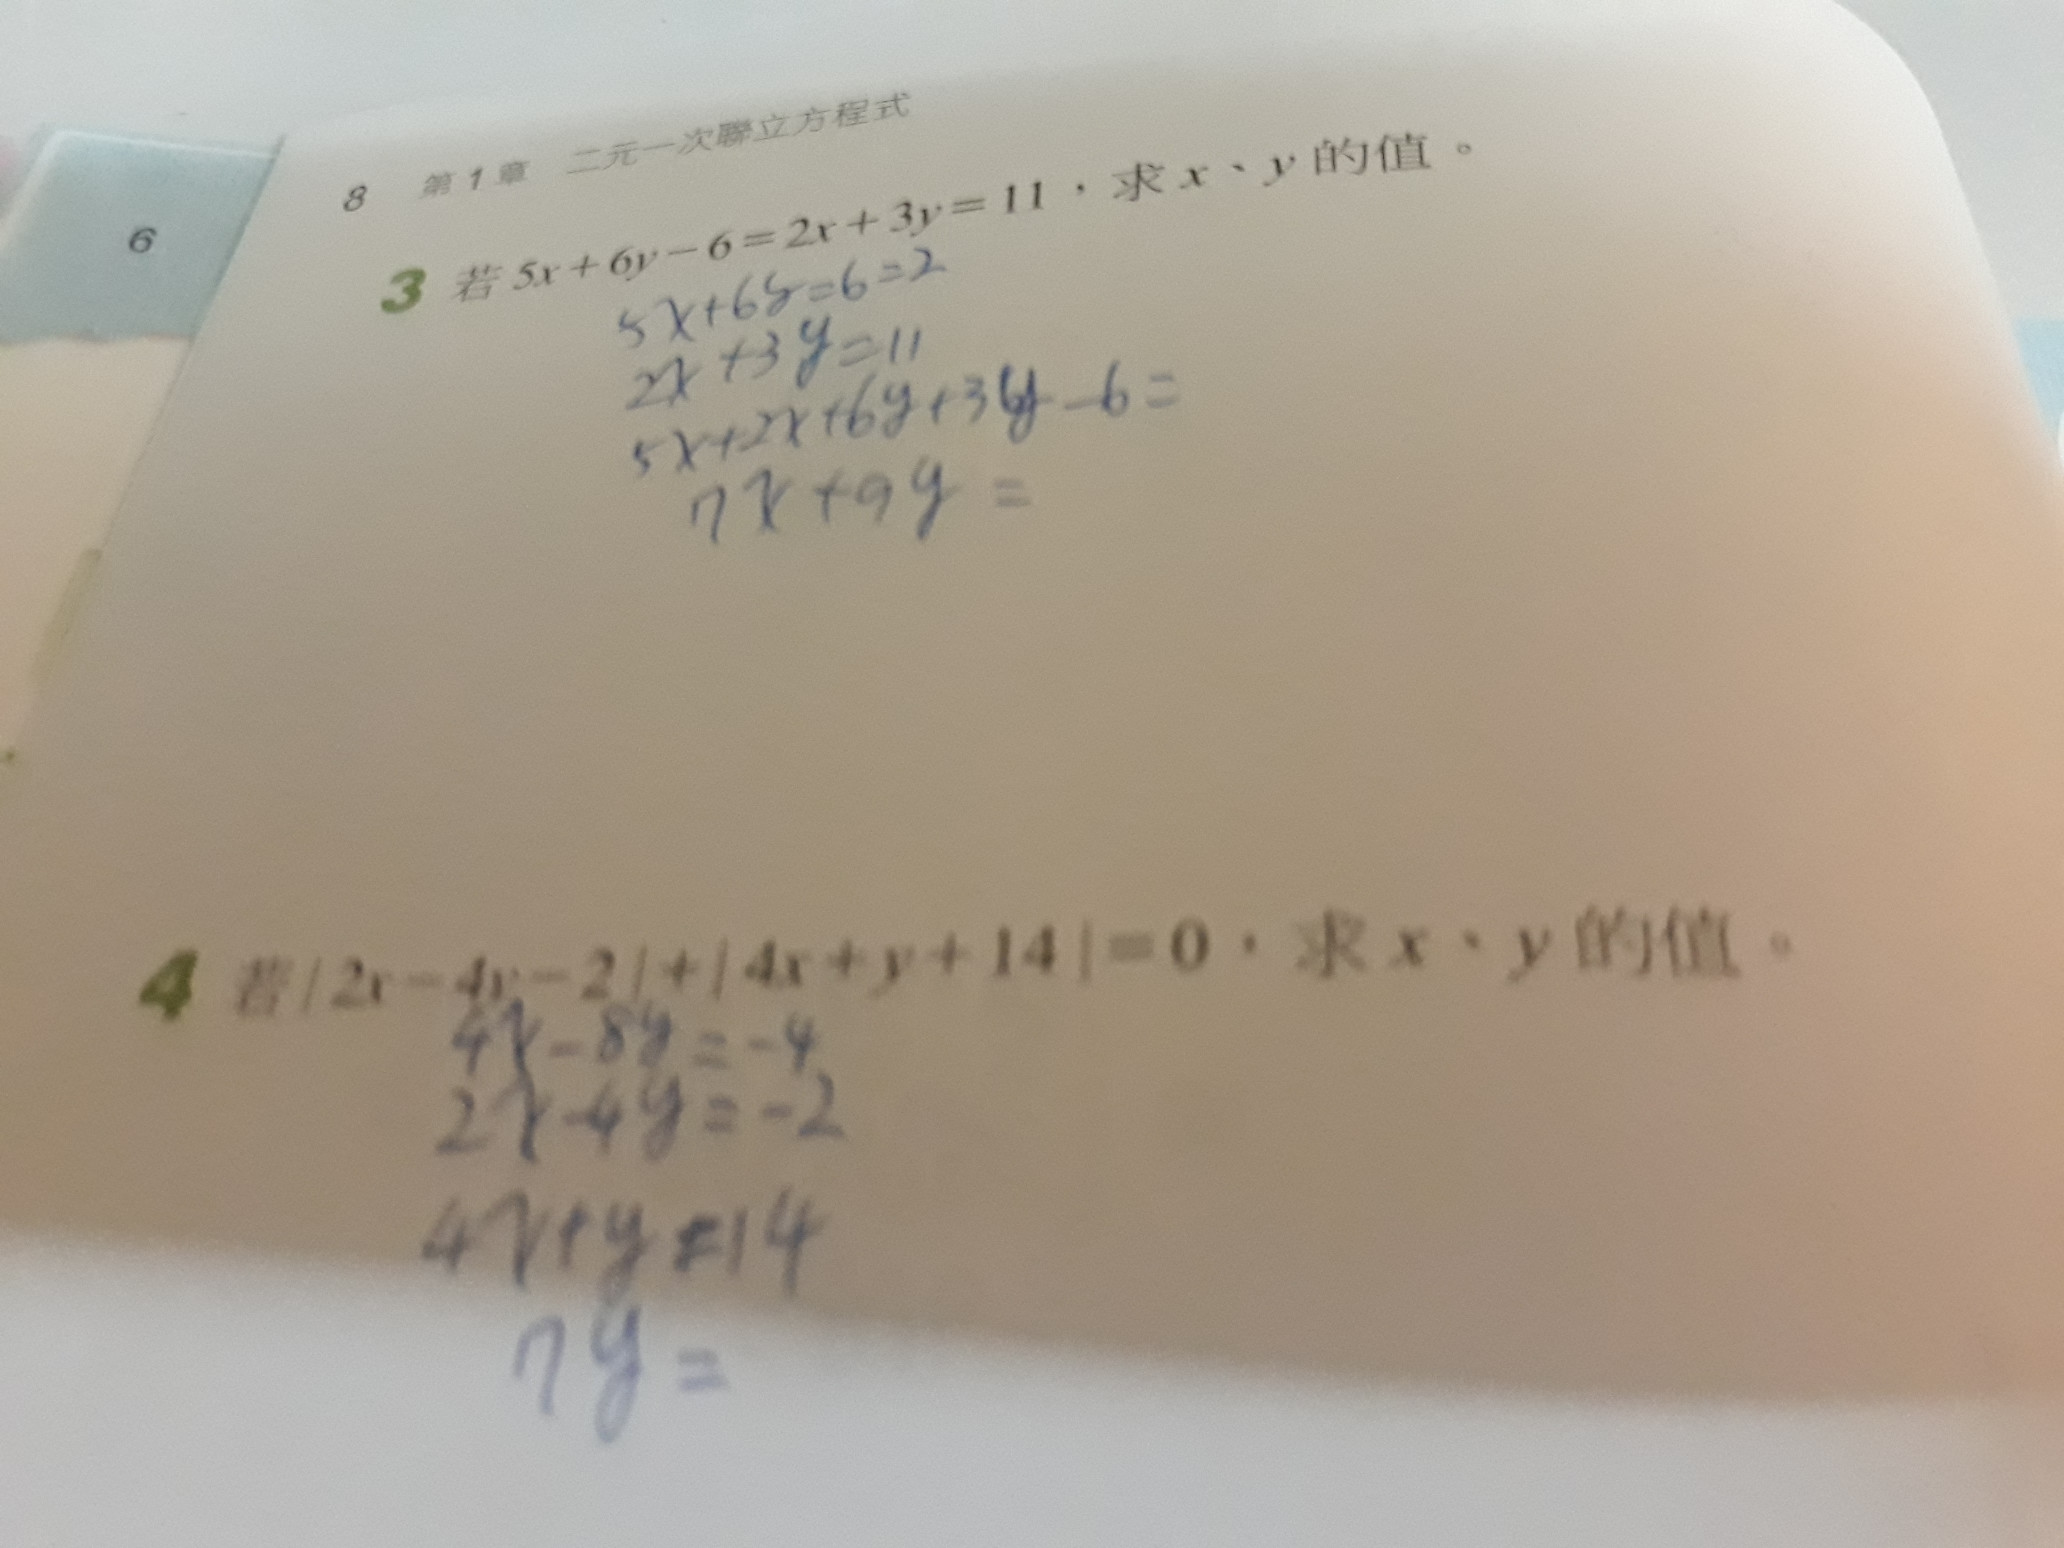 6
8 第1章 二元一次聯立方程式
3 若 5x+6y-6=2x+3y=11，求 x、y 的值。
5x+6y=6=2
2x+3y=11
5x+2x+6y+3y-6=
7x+9y=
4 若|2x-4y-2|+|4x+y+14|=0，求 x、y 的值。
4x-8y=-4
2x-4y=-2
4x+y=14
7y=